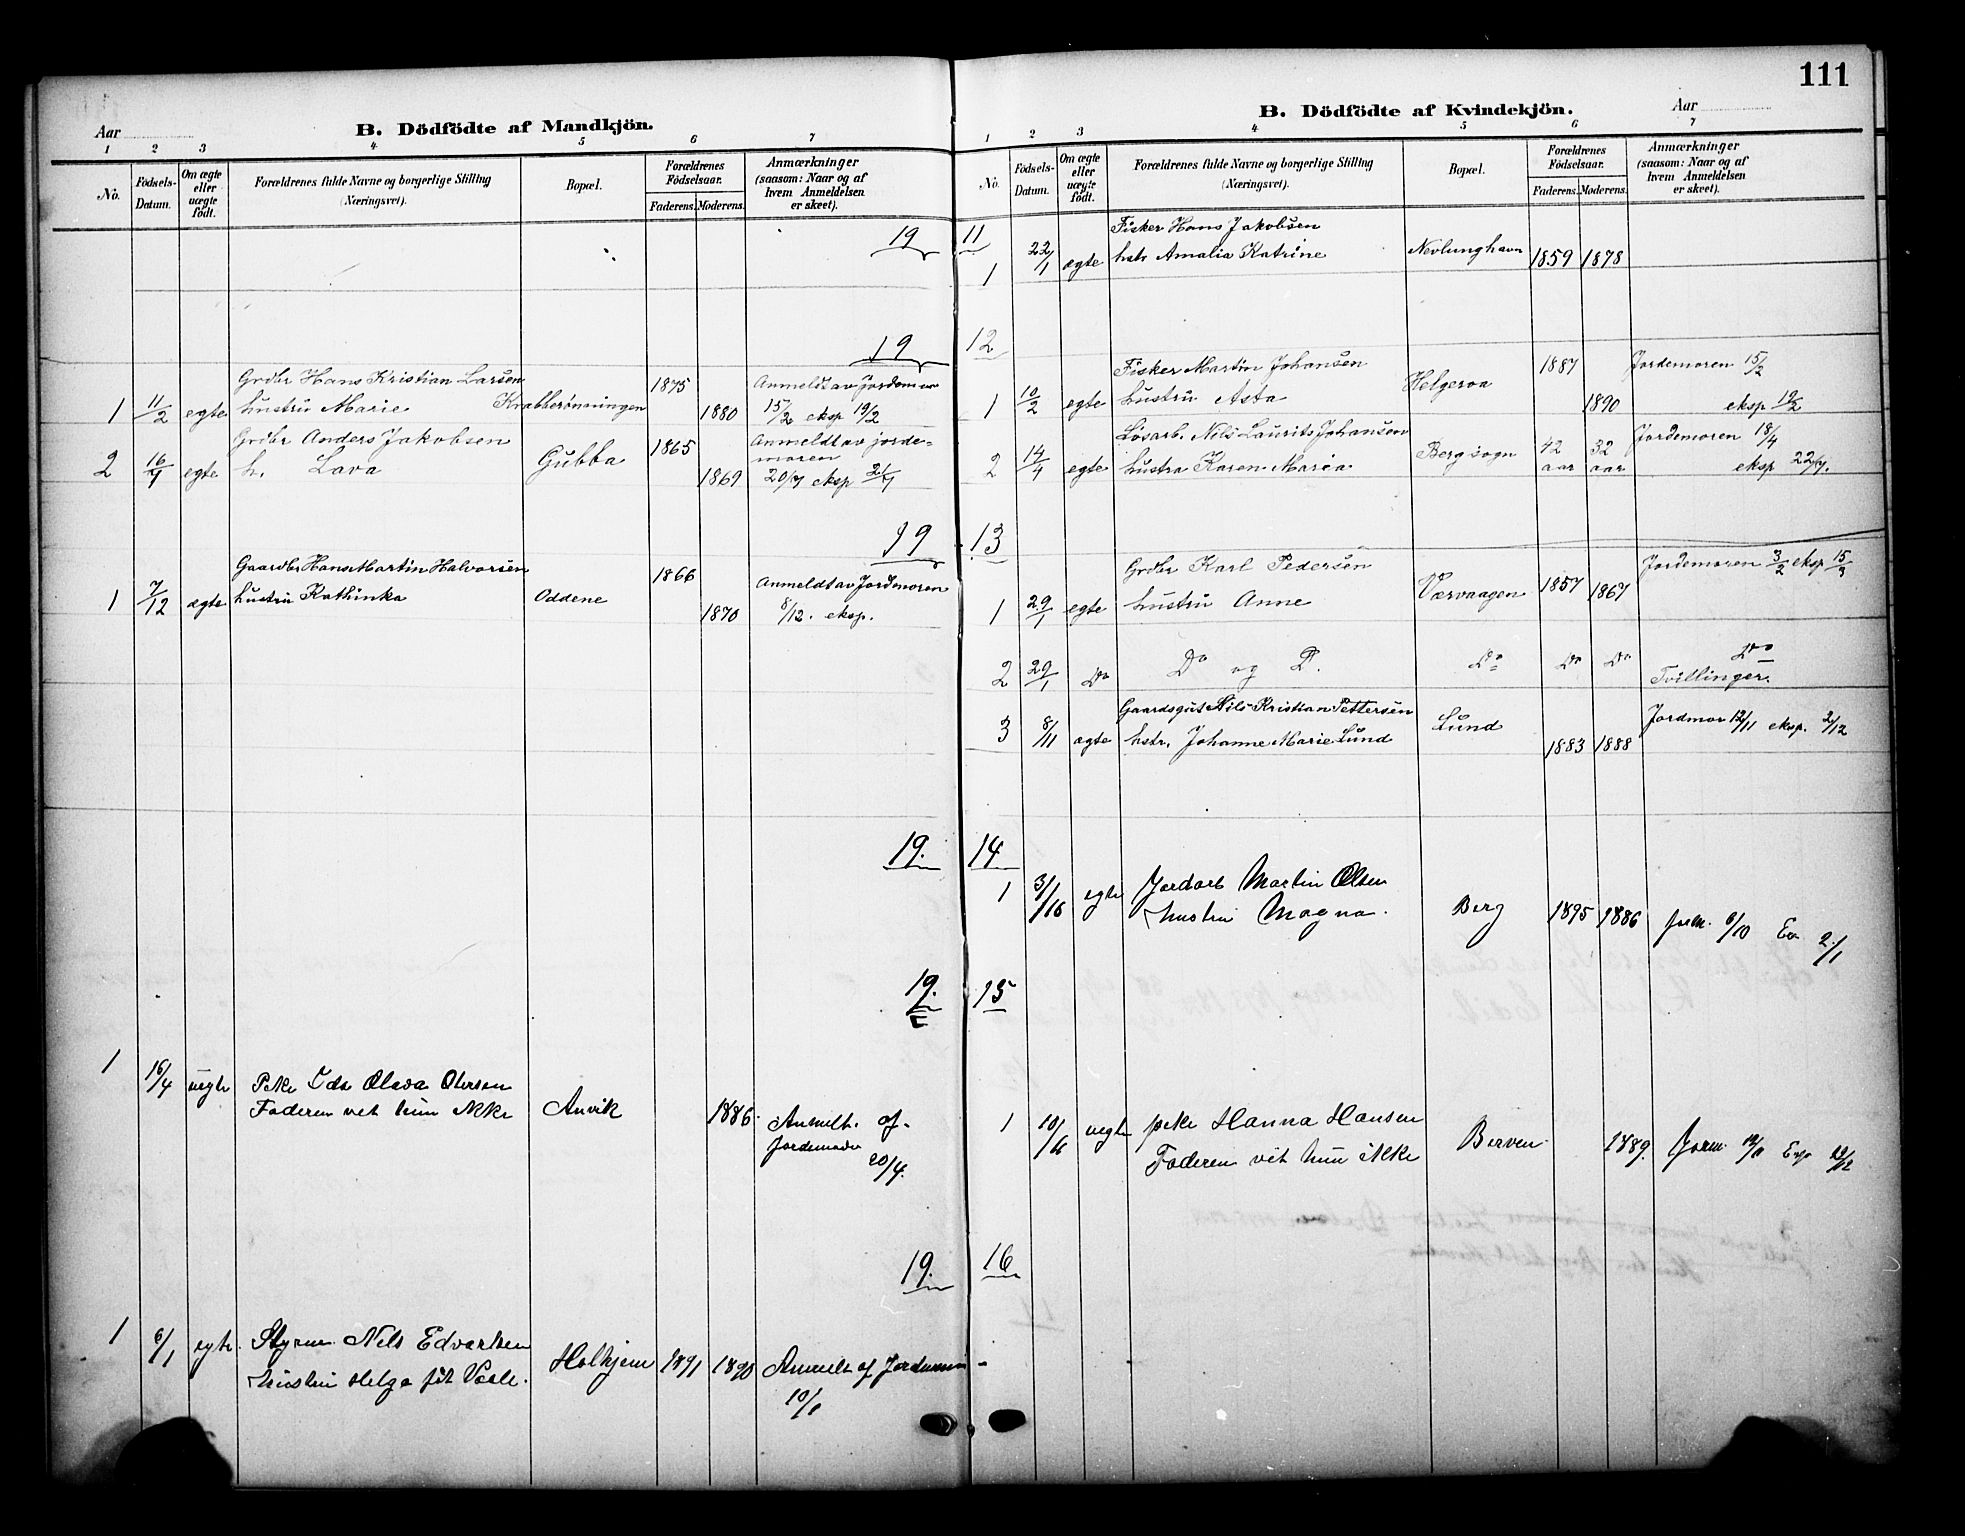 111
Aar
B. Dödfödte af Mandkjön.
1 2 3 4 5 6 7
No.
Födsels-Datum.
Om ægte eller uægte födt.
Forældrenes fulde Navne og borgerlige Stilling (Næringsvei).
Bopæl.
Forældrenes Födselsaar.
Faderens. Moderens.
Anmærkninger (saasom: Naar og af hvem Anmeldelsen er skeet).
19
19
Grdbr Hans Kristian Larsen 1875 Anmeldt av jordemor
1 11/2 egte hustru Marie Krabberønningen 1880 15/2 eksp 19/2
Grdbr Anders Jakobsen 1865 Anmeldt av jorde-
moren
2 16/4 egte h. Lava Gubba 1869 20/4 eksp
19
Gaardbr Hans Martin Halvorsen 1866 Anmeldt av Jordmoren
1 7/12 ægte hustru Kathinka Oddene 1870 8/12. eksp.
19.
19.
1 16/4 uegte Pike Ida Olava Olersen
Faderen vet hun ikke Anvik 1886 Anmeldt af
Jordemoder
20/4.
19.
1 6/1 egte Styrm. Nils Edvardsen
hustru Helga født Vaale. Holkjem 1891 1890 Anmeldt af Jordemor
10/1
B. Dödfödte af Kvindekjön.
Aar
1 2 3 4 5 6 7
No.
Födsels-Datum.
Om ægte eller uægte födt.
Forældrenes fulde Navne og borgerlige Stilling (Næringsvei).
Bopæl.
Forældrenes Födselsaar.
Faderens. Moderens.
Anmærkninger (saasom: Naar og af hvem Anmeldelsen er skeet).
11
Fisker Hans Jakobsen
1 22/1 ægte hstr Amalia Katrine Nevlunghavn 1859 1878
12
Fisker Martin Johansen 1887 Jordemoren 15/2
1 10/2 egte hustru Asta Helgeroa 1890 eksp 19/2
Løsarb. Nils Laurits Johansen 42 aar 32 aar Jordemoren 18/4
2 14/4 egte hustru Karen Maria Berg sogn eksp 22/4.
13
Grdbr Karl Pedersen Jordemoren 3/2 eksp 15/3
1 29/1 egte hustru Anne Værvaagen 1857 1867
2 29/1 Do Do og D. Do Do Do Do
Tvillinger.
Gaardsgut Nils Kristian Pettersen
3 8/11 ægte hstr. Johanne Marie Lund Lund 1883 1888 Jordmor 12/11 eksp. 2/12
14
1 egte Jordarb Martin Olsen
hustru Magna. Berg 1895 1886 Jordm. 6/10 2/1
15
1 uegte pike Hanna Hansen
Faderen vet hun ikke Berven 1889. Jordm.
16
-